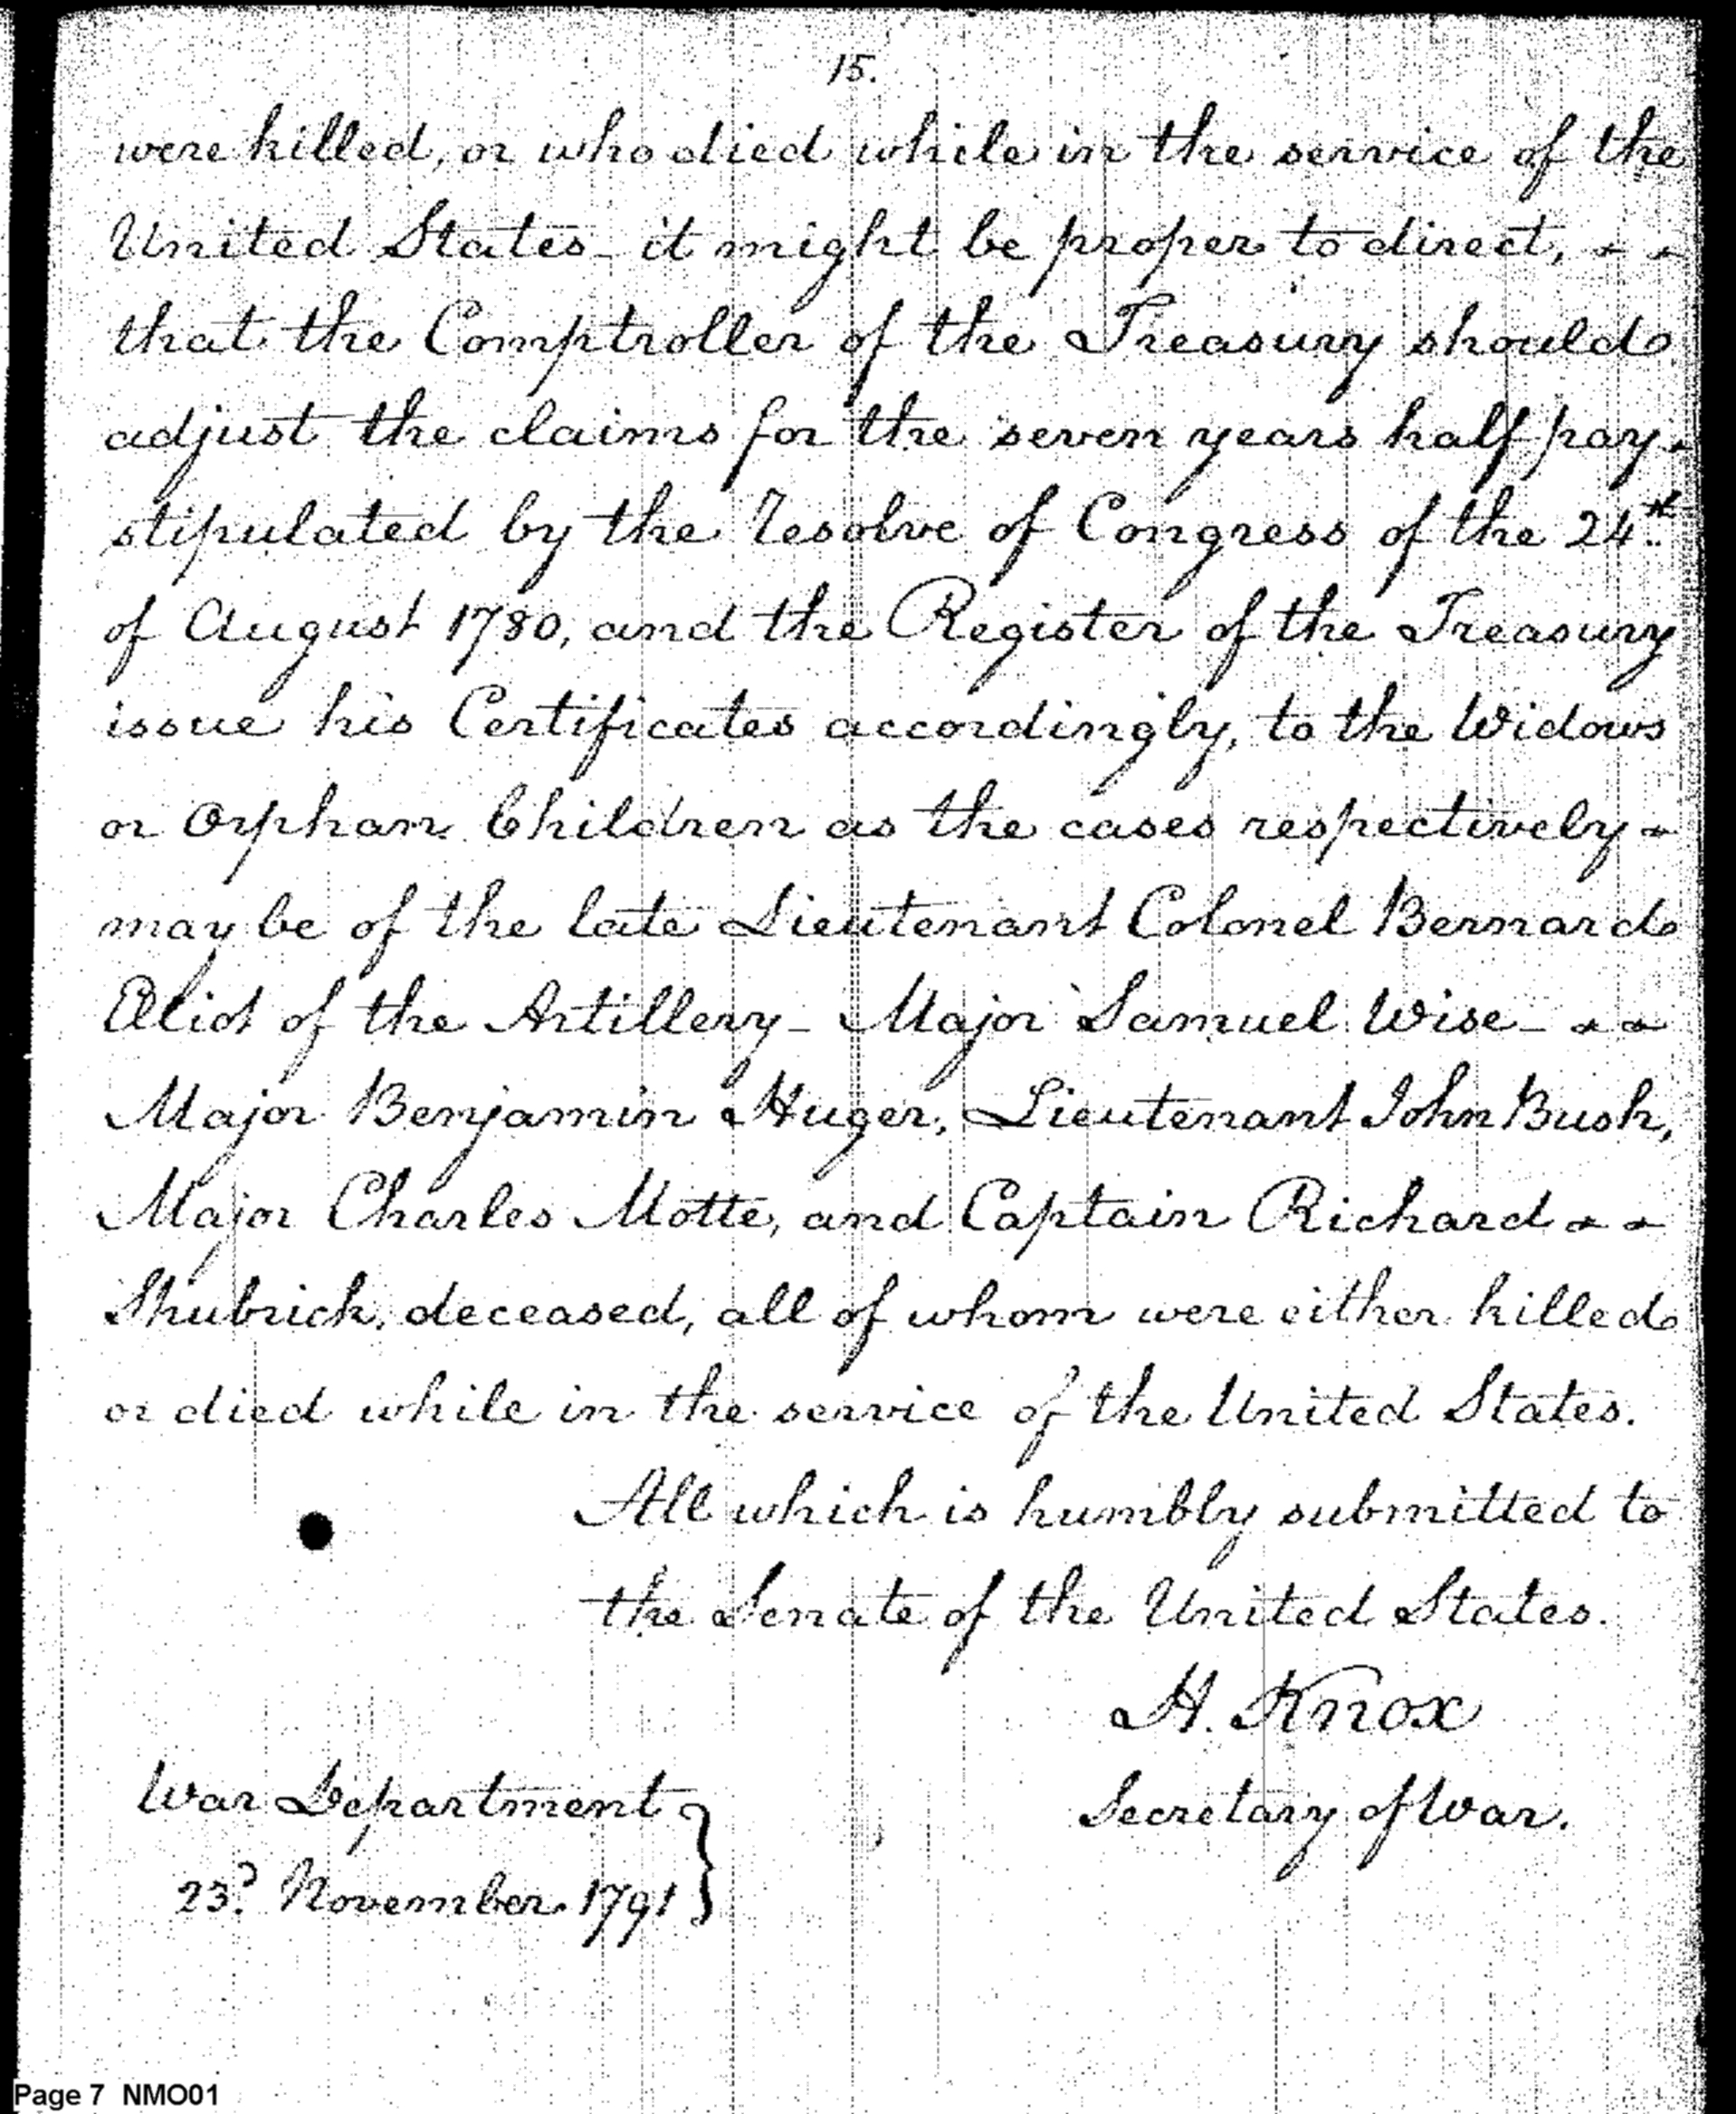 15.
were killed, or who died while in the service of the
United States - it might be proper to direct, - -
that the Comptroller of the Treasury should
adjust the claims for the seven years half pay -
stipulated by the resolve of Congress of the 24th
of August 1780, and the Register of the Treasury
issue his Certificates accordingly, to the Widows
or Orphan Children as the cases respectively -
may be of the late Lieutenant Colonel Bernard
Eliot of the Artillery - Major Samuel Wise - - -
Major Benjamin Huger, Lieutenant John Bush,
Major Charles Motte, and Captain Richard - -
Shubrick, deceased, all of whom were either killed
or died while in the service of the United States.
All which is humbly submitted to
the Senate of the United States.
H. Knox
Secretary of War.
War Department
23d November 1791
Page 7 NMO01